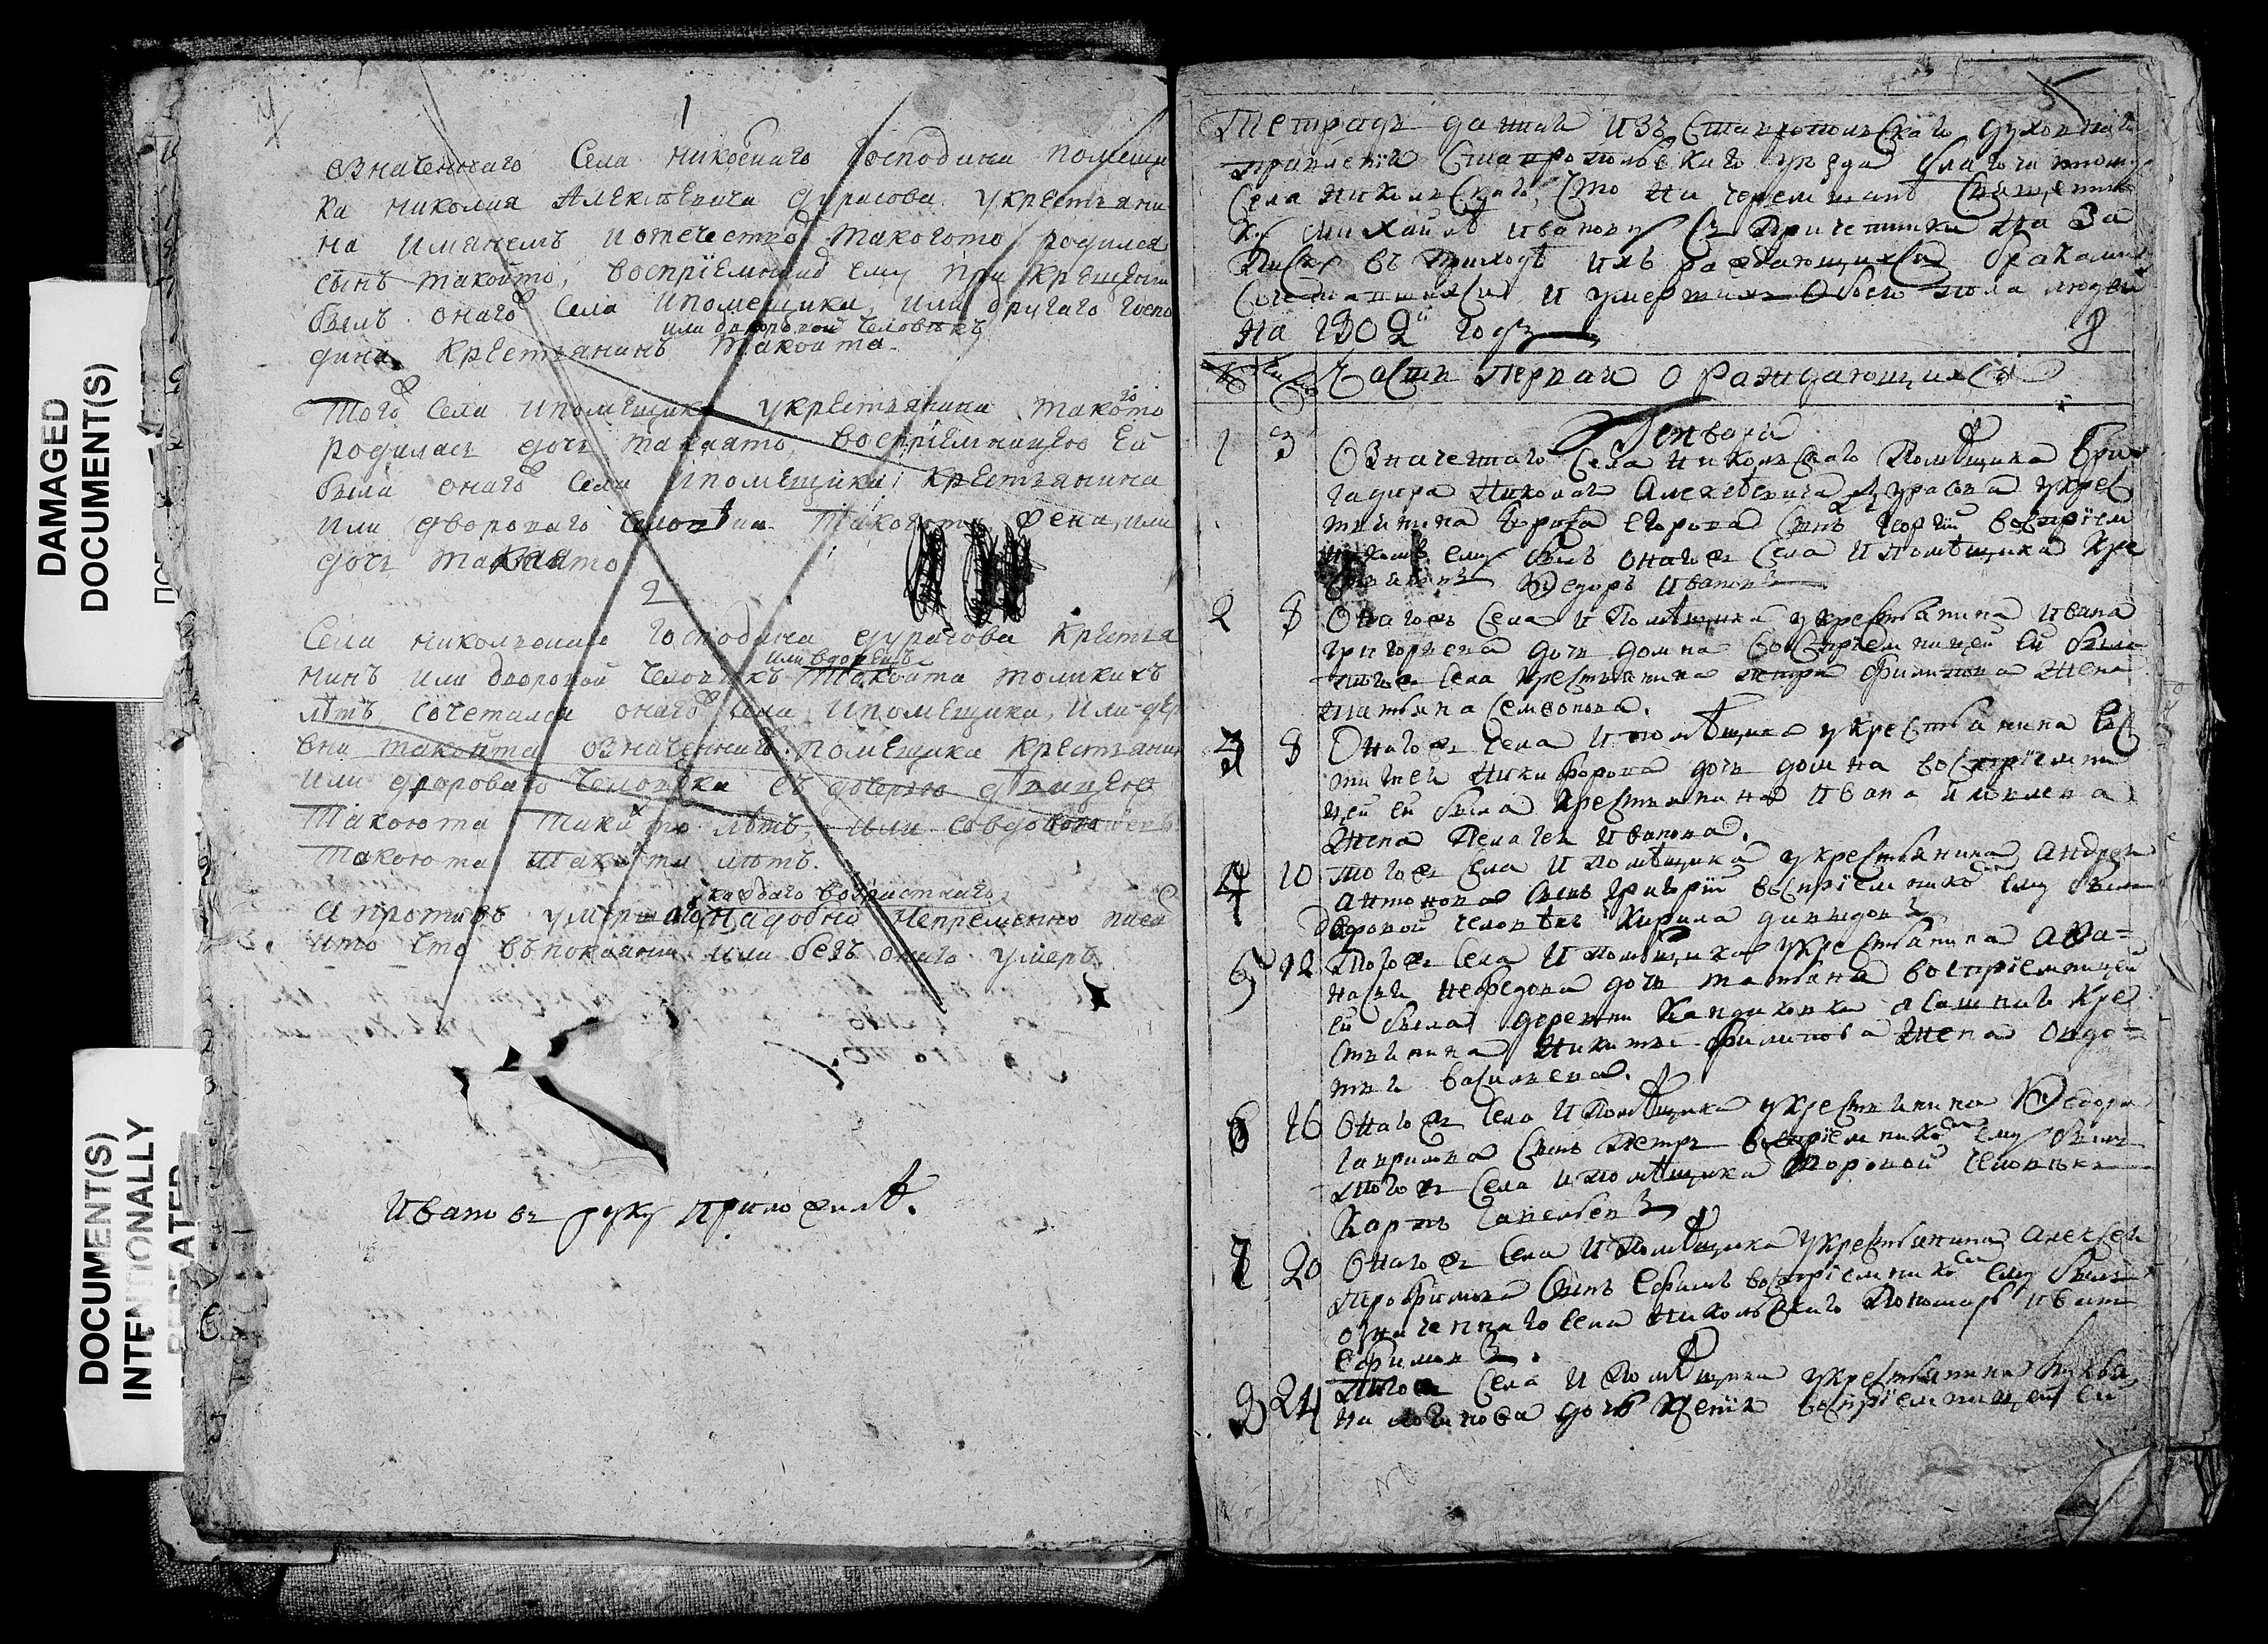 DAMAGED
DOCUMENT(S)
DOCUMENT(S)
INTENTIONALLY
REPEATED
1
Означеннаго Села Никольскаго Господина помещи
ка николая Алексѣевича дурасова укрестьяни
на Имянемъ иотечествo такогото родился
сынъ такойто, воспрїемникъ ему при крещенїи
былъ онаго Села ипомещика, или другаго Госпо
или дворовой человѣкъ
дина крестьянинъ такойта.
Того Села ипомещика укрестьянина такогото
родилась дочь такаято, воспрїемницею ей
была онаго Села ипомещика крестьянина
или двороваго человѣка такогото жена, или
дочь такаято
2
Села никольскаго Господина дурасова крестья
или вдовецъ
нинъ или дворовой человѣкъ такойта толикихъ
лѣтъ, сочетался онаго села ипомещика, или дер
вни такойта означеннаго помещика крестьянина
или двороваго человѣка съ дочерью девицею
такоюта такихто лѣтъ, или совдовою
такоюта такихта лѣтъ.
каждаго возрастнаго
а противъ умершаго надобно непременно писа
что въпокаянїи или безъ онаго умеръ
Ивановъ руку приложилъ.
Тетрадь данная изъ Ставропольскаго духовнаго
правленїя Ставропольскаго уезда благочинному
Села никольскаго, что на черемшанѣ Священни
ку михаилѣ иванову съ причетники на за
писку въ приходѣ ихъ раждающихся бракомъ
сочетавшихся и умершихъ обоего пола людей
на 1802й годъ
Часть первая о раждающихся
Генваря
1 3 Означеннаго Села никольскаго помѣщика бри
гадира николая Алексѣевича дурасова укрес
тьянина егорова сынъ георгїй воспрїем
никомъ ему былъ онагожъ села и помѣщика кре
стьянинъ Федоръ ивановъ
2 8 Онагожъ села и помѣщика укрестьянина ивана
григорьева дочь домна воспрїемницей ей была
тогожъ села крестьянина петра филипова жена
татьяна семенова.
3 8 Онагожъ села и помѣщика укрестьянина ев
никифорова дочь домна воспрїемни
цей ей была крестьянина ивана
жена пелагея иванова.
4 10 тогожъ села и помѣщика укрестьянина андрея
антонова сынъ григорїй воспрїемникомъ ему былъ
дворовой человѣкъ кирила давыдовъ
5 12 тогожъ села и помѣщика укрестьянина афа-
насья нефедова дочь татьяна воспрїемницей
ей была деревни кандаковки ясашнаго кре
стьянина никиты филипова жена овдо-
тья васильева.
6 16 Онагожъ села и помѣщика укрестьянина Федора
гаврилова сынъ петръ воспрїемникомъ ему былъ
тогожъ села и помѣщика дворовой человѣкъ
карпъ савельевъ
7 20 Онагожъ села и помѣщика укрестьянина алексея
трофимова сынъ ефимъ воспрїемникомъ ему былъ
означеннаго села никольскаго пономарь иванъ
ефимовъ.
8 24 тогожъ села и помѣщика укрестьянина
логинова дочь ксенїя воспрїемницей ей